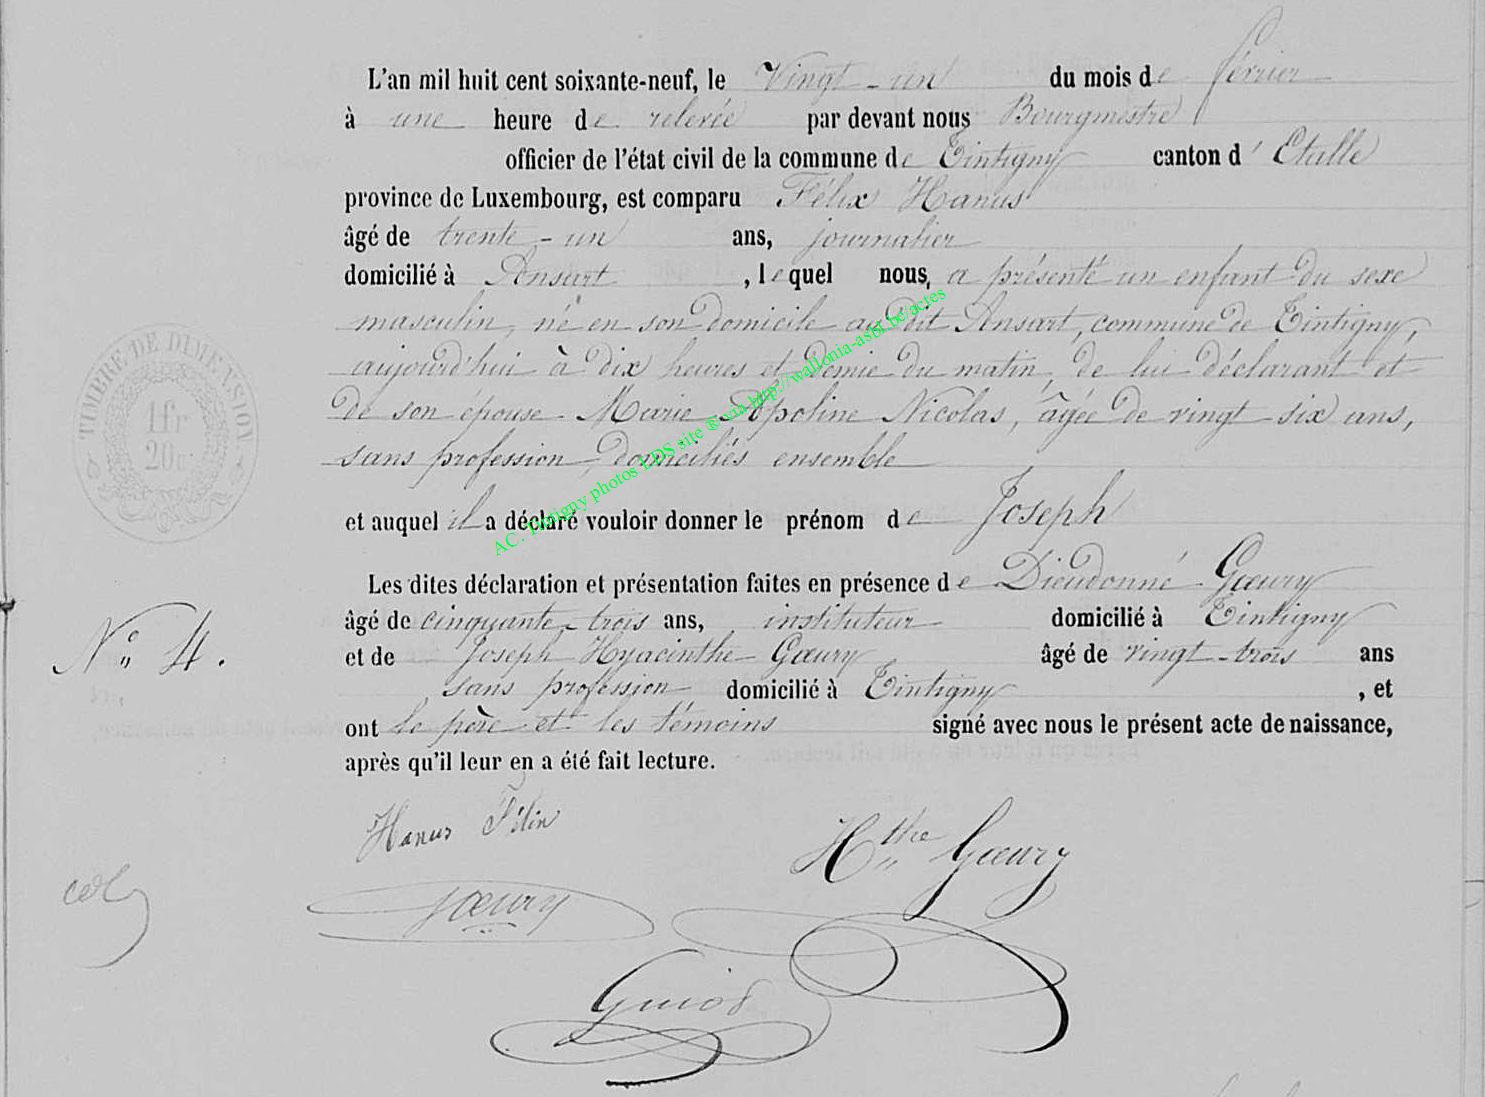 L'an mil huit cent soixante-neuf, le Vingt-un du mois de février
à une heure de relevée par devant nous Bourgmestre
officier de l'état civil de la commune de Tintigny canton d'Etalle
province de Luxembourg, est comparu Félix Hanus
âgé de trente-un ans, journalier
domicilié à Ansart, lequel nous, a présenté un enfant du sexe
masculin, né en son domicile au dit Ansart, commune de Tintigny,
aujourd'hui à dix heures et demie du matin, de lui déclarant et
de son épouse Marie Apoline Nicolas, âgée de vingt six ans,
sans profession, domiciliés ensemble
et auquel il a déclaré vouloir donner le prénom de Joseph
Les dites déclaration et présentation faites en présence de Dieudonné Gœury
âgé de cinquante-trois ans, instituteur domicilié à Tintigny
et de Joseph Hyacinthe Gœury âgé de vingt-trois ans
sans profession domicilié à Tintigny, et
ont le père et les témoins signé avec nous le présent acte de naissance,
après qu'il leur en a été fait lecture.
TIMBRE DE DIMENSION
1fr
20c
N° 4.
AC. Tintigny photos LDS site ® via http://wallonia-asbl.be/actes
Hanus Félix
Hthe Gœury
Gœury